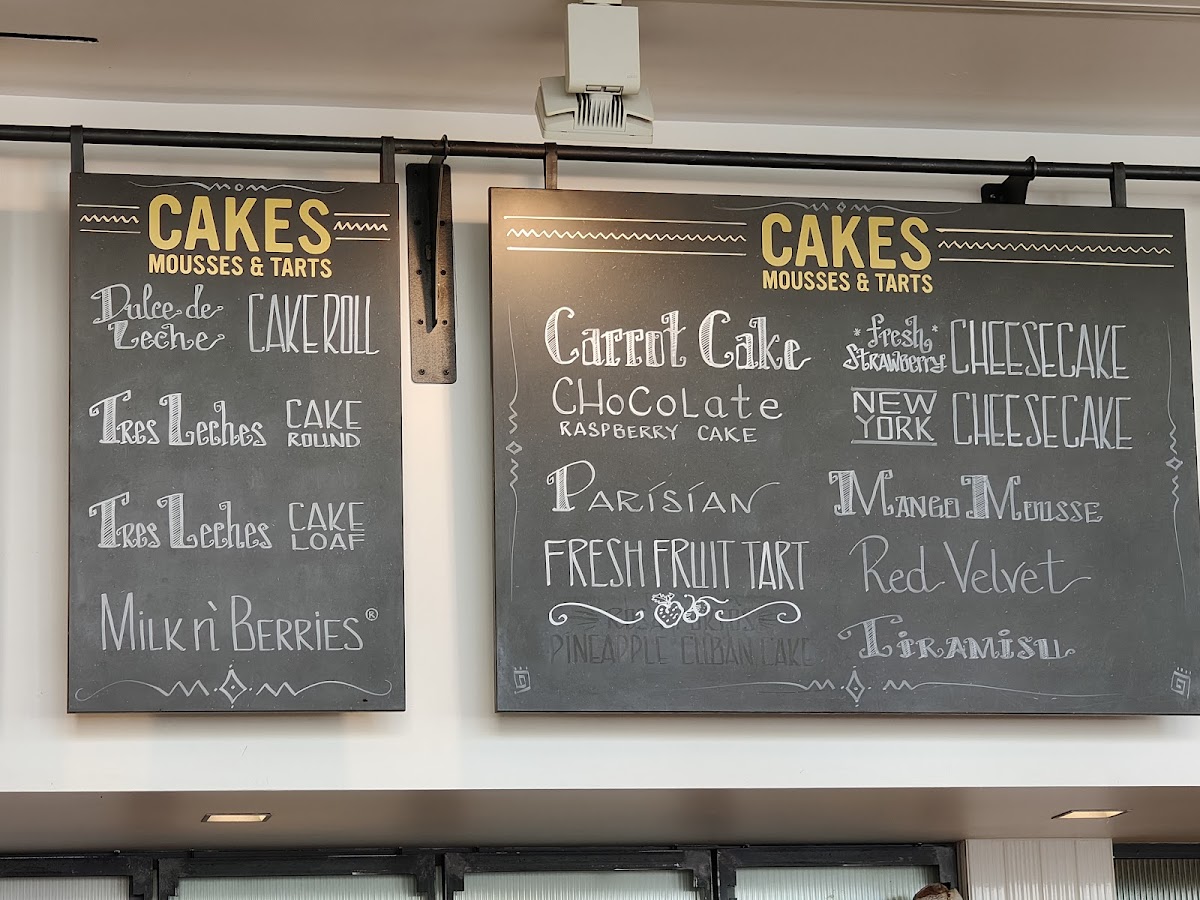 CAKES
MOUSSES & TARTS
Dulce de
Leche
CAKE ROLL
Tres Leches
CAKE
ROUND
Tres Leches
CAKE
LOAF
Milk n' Berries®
CAKES
MOUSSES & TARTS
Carrot Cake
CHOCOLate
RASPBERRY CAKE
Parisian
FRESH FRUIT TART
PINEAPPLE CUBAN CAKE
*fresh*
Strawberry
CHEESECAKE
NEW
YORK
CHEESECAKE
Mango Mousse
Red Velvet
Tiramisu